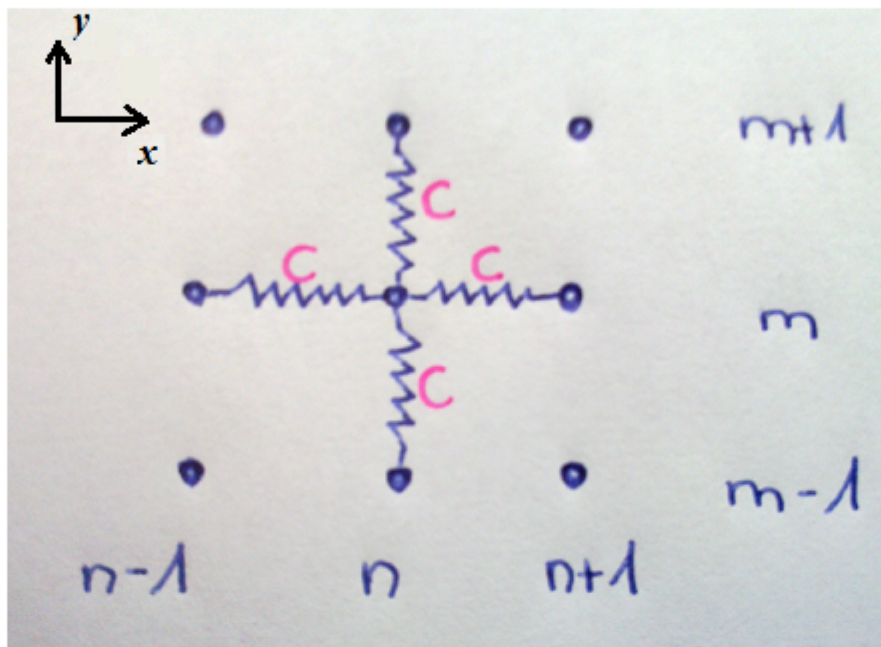 y
x
m+1
C
C
C
m
C
m-1
n-1
n
n+1